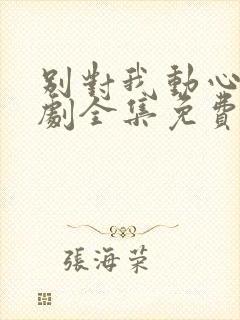 別對我動心
劇全集免費
張海荣